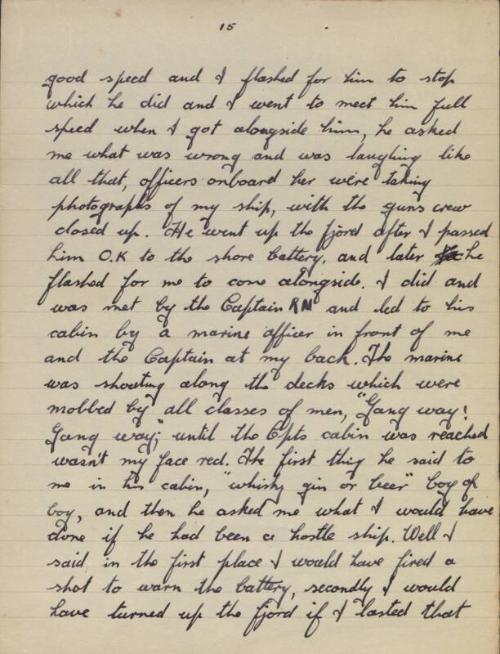 15
good speed and I flashed for him to stop
which he did and I went to meet him full
speed when I got alongside him, he asked
me what was wrong and was laughing like
all that, officers onboard her were taking
photographs of my ship, with the guns crew
closed up. He went up the fjord after I passed
him O.K to the shore battery, and later he
flashed for me to come alongside. I did and
was met by the Captain RN and led to his
cabin by a marine officer in front of me
and the Captain at my back. The marine
was shouting along the decks which were
mobbed by all classes of men, "Gang way!
Gang way;" until the Cpts cabin was reached
wasn't my face red. The first thig he said to
me in his cabin, "whisky gin or beer" boy oh
boy, and then he asked me what I would have
done if he had been a hostle ship. Well I
said in the first place I would have fired a
shot to warn the battery, secondly I would
have turned up the fjord if I lasted that